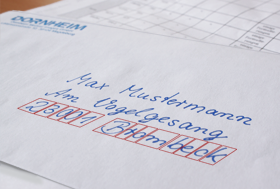 DORNHEIM
Max Mustermann
Am Vogelgesang
23001 Boombeck